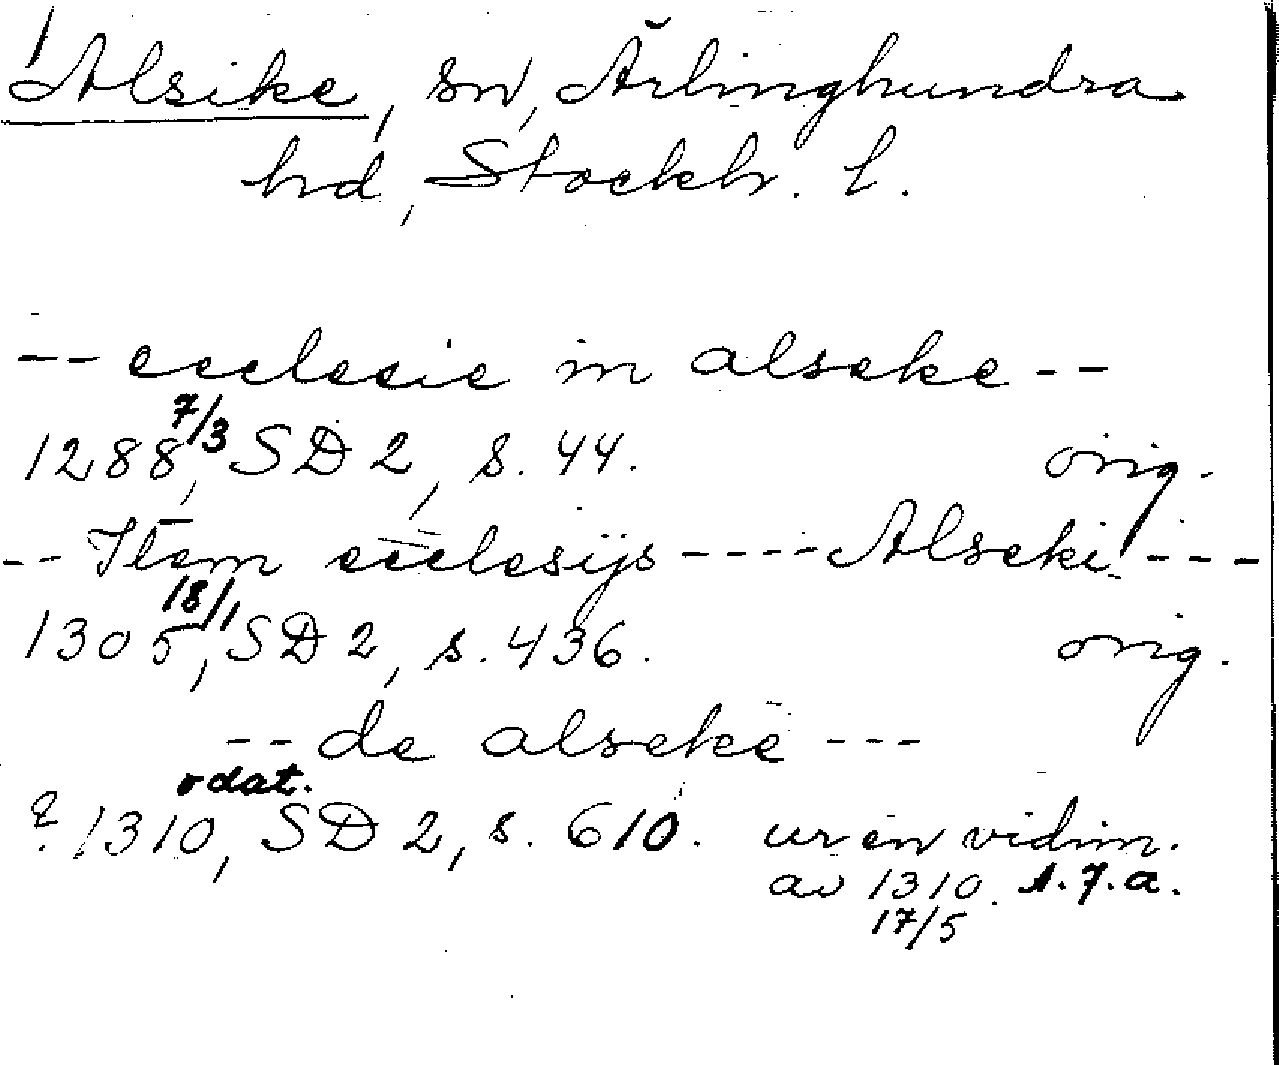 Alsike, sn, Ärlinghundra
hd, Stockh. l.
-- ecclesie in alseke --
1288 7/3, SD 2, s. 44. orig.
-- Item ecclesijs ---- Alseki ---
1305 18/1, SD 2, s. 436. orig.
-- de alseke ---
odat.
? 1310, SD 2, s. 610. ur en vidim.
av 1310.
17/5